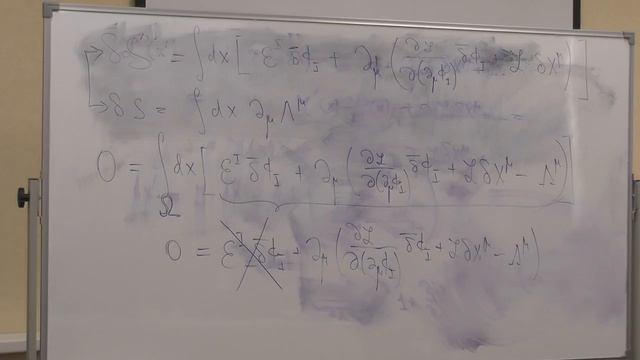 δ S = ∫ dx [ ℰ^I δ̄φ_I + ∂_μ ( ∂ℒ/∂(∂_μ φ_I) δ̄φ_I + ℒ δx^μ ) ]
δ S = ∫ dx ∂_μ Λ^μ
0 = ∫_Ω dx [ ℰ^I δ̄φ_I + ∂_μ ( ∂ℒ/∂(∂_μ φ_I) δ̄φ_I + ℒ δx^μ − Λ^μ ) ]
0 = ℰ^I δ̄φ_I + ∂_μ ( ∂ℒ/∂(∂_μ φ_I) δ̄φ_I + ℒ δx^μ − Λ^μ )